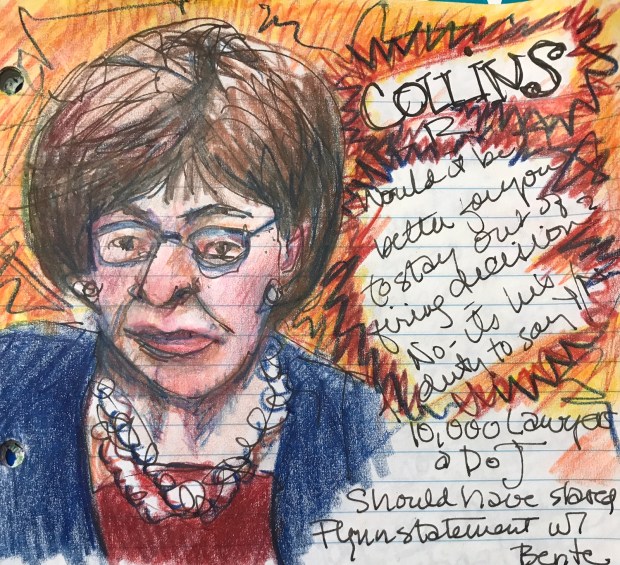 COLLINS
R
Would it be
better for you
to stay out of
firing decision
No - its his
duty to say Y/N
10,000 Lawyers
a DoJ
Should have shared
Flynn statement w/